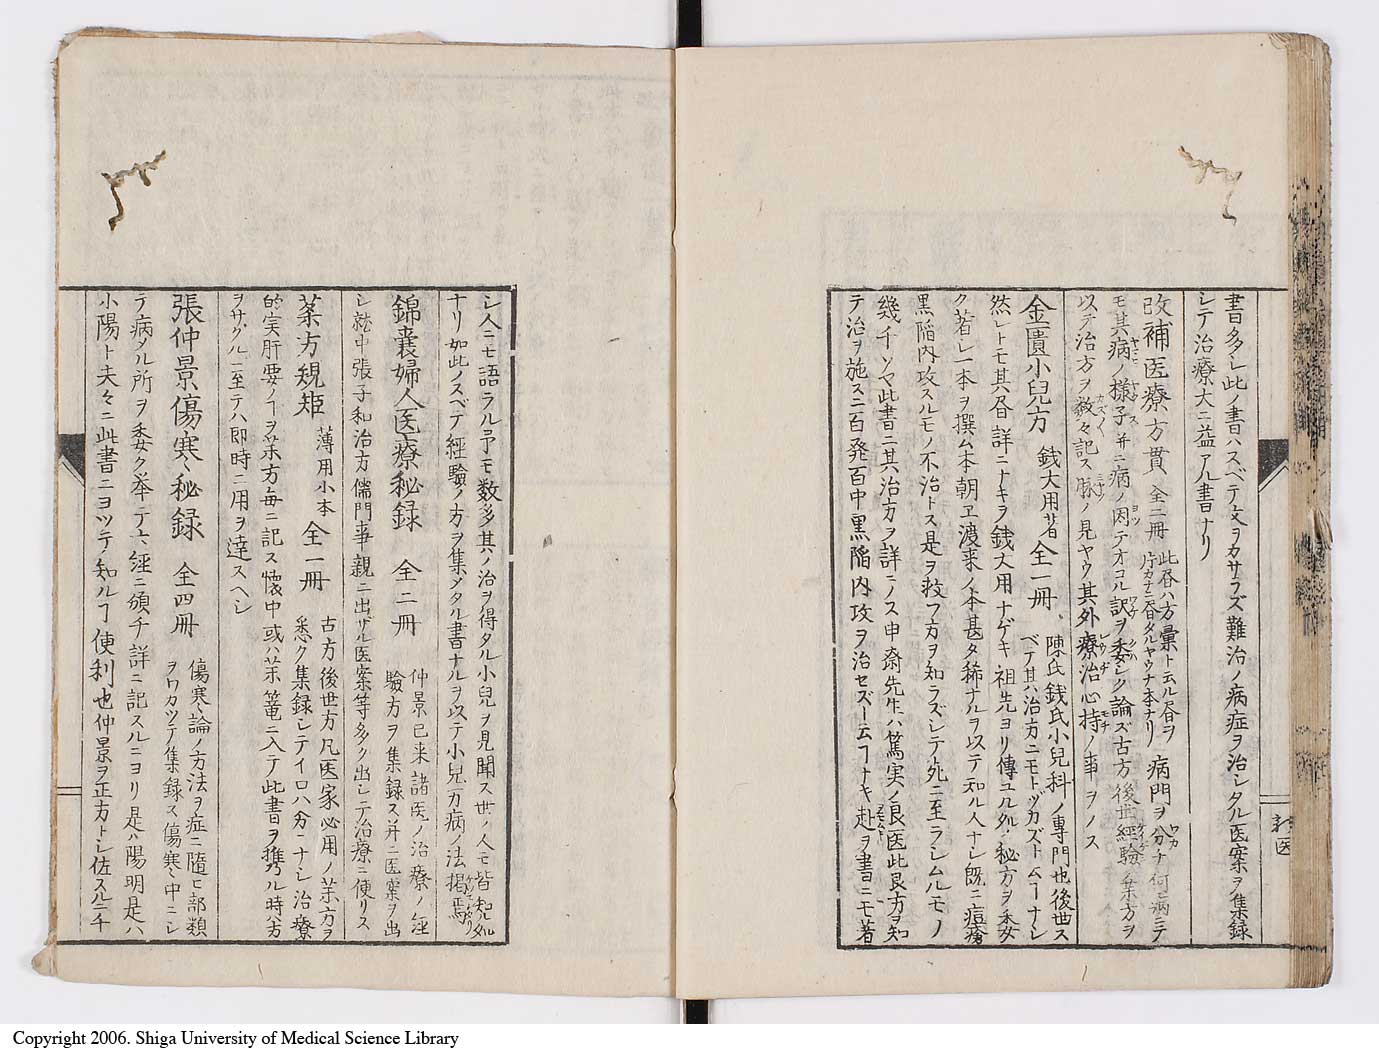 書多シ此ノ書ハスベテ文ヲカサラズ難治ノ病症ヲ治シタル医案ヲ集録
シテ治療大ニ益アル書ナリ
改補医療方貫 全二冊 此昏ハ方彙ト云ル昏ヲ 病門ヲ分ナ何病ニテ
片カナニ昏タルヤウナ本ナリ
モ其病ノ様子并ニ病ノ因テオコル訳ヲ委シク論ズ古方後世経験ノ薬方ヲ
以テ治方ヲ数々記ス脉ノ見ヤウ其外療治心持ノ事ヲノス
金匱小兒方 銭大用著 全一冊 陳氏銭氏小兒科ノ専門也後世ス
ベテ其治方ニモトヅカズトムーナシ
然レトモ其昏詳ニナキヲ銭大用ナゲキ祖先ヨリ傳ユル処ノ秘方ヲ委
ク著シ一本ヲ撰ム本朝ヱ渡来ノ本甚タ稀ナルヲ以テ知ル人ナシ既ニ痘瘡
黒陥内攻スルモノ不治トス是ヲ救フ方ヲ知ラズシテ死ニ至ラシムルモノ
幾千ソヤ此書ニ其治方ヲ詳ニノス中斎先生ハ篤実ノ良医此良方ヲ知
テ治ヲ施スニ百発百中黒陥内攻ヲ治セズーム一ナキ赴ヲ書ニモ著
シ人ニモ語ラル予モ数多其ノ治ヲ得タル小兒ヲ見聞ス世ノ人モ皆知処
ナリ如此ノスベテ経験ノ方ヲ集メタル書ナルヲ以テ小兒一切病ノ法掲焉
錦嚢婦人医療秘録 全二冊 仲景已来諸医ノ治療ノ経
験方ヲ集録ス并ニ医案ヲ出
シ就中張子和治方儒門事親ニ出ザル医案等多ク出シテ治療ニ便リス
薬方規矩 薄用小本 全一冊 古方後世方凡医家必用ノ薬方ヲ
悉ク集録シテイロハ分ニナシ治療
的実肝要ノヿヲ薬方毎ニ記ス懐中或ハ薬篭ニ入テ此書ヲ携ル時ハ方
ヲサグルニ至テハ即時ニ用ヲ達スヘシ
張仲景傷寒秘録 全四冊 傷寒論ノ方法ヲ症ニ隨ヒ部類
ヲワカツテ集録ス傷寒中ニシ
テ病メル所ヲ委ク挙テ六經ニ頒チ詳ニ記スルニヨリ是ハ陽明是ハ
小陽ト夫々ニ此書ニヨツテ知ルヿ便利也仲景ヲ正方トシ佐スルニ千